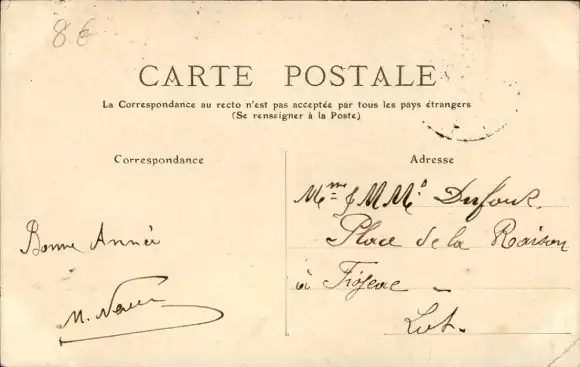 8 €
CARTE POSTALE
La Correspondance au recto n'est pas acceptée par tous les pays étrangers
(Se renseigner à la Poste)
Correspondance
Adresse
Bonne Année
M.
Dufour
Place de la Raison
à Figeac
Lot.